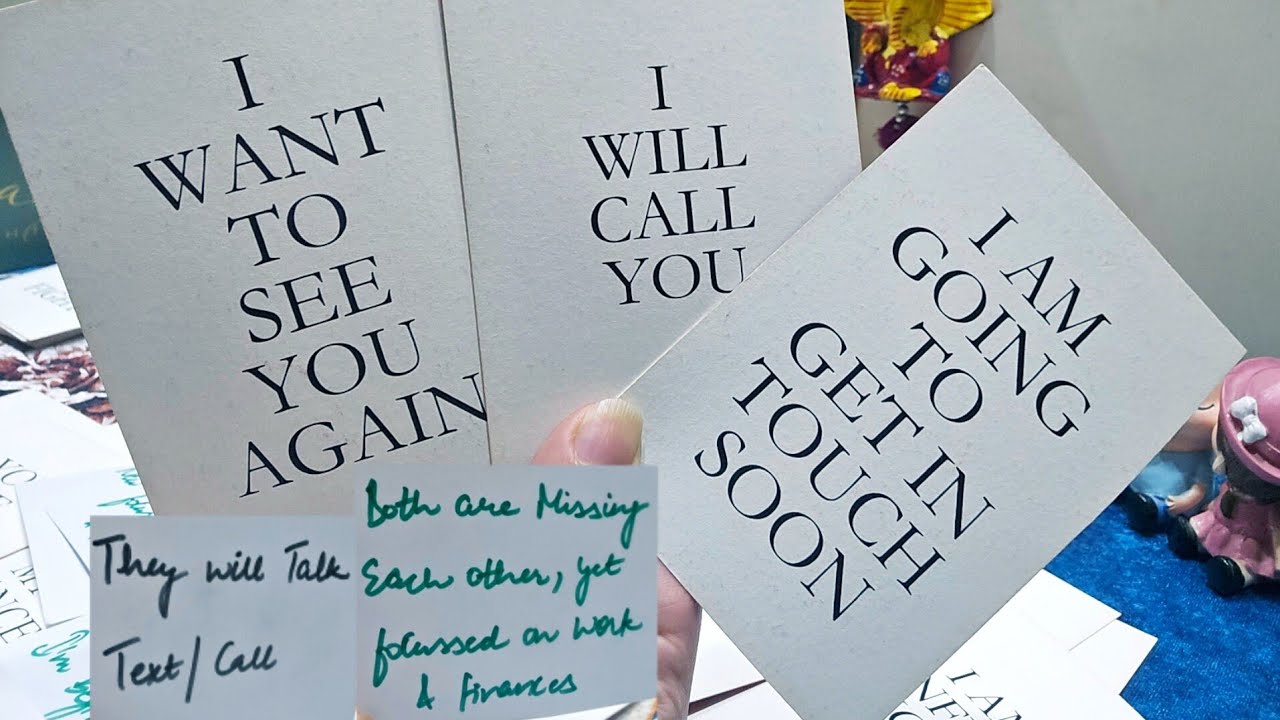 I
WANT
TO
SEE
YOU
AGAIN
I
WILL
CALL
YOU
I AM
GOING
TO
GET IN
TOUCH
SOON
They will Talk
Text/Call
Both are Missing
Each other, yet
focussed on work
& finances
I AM